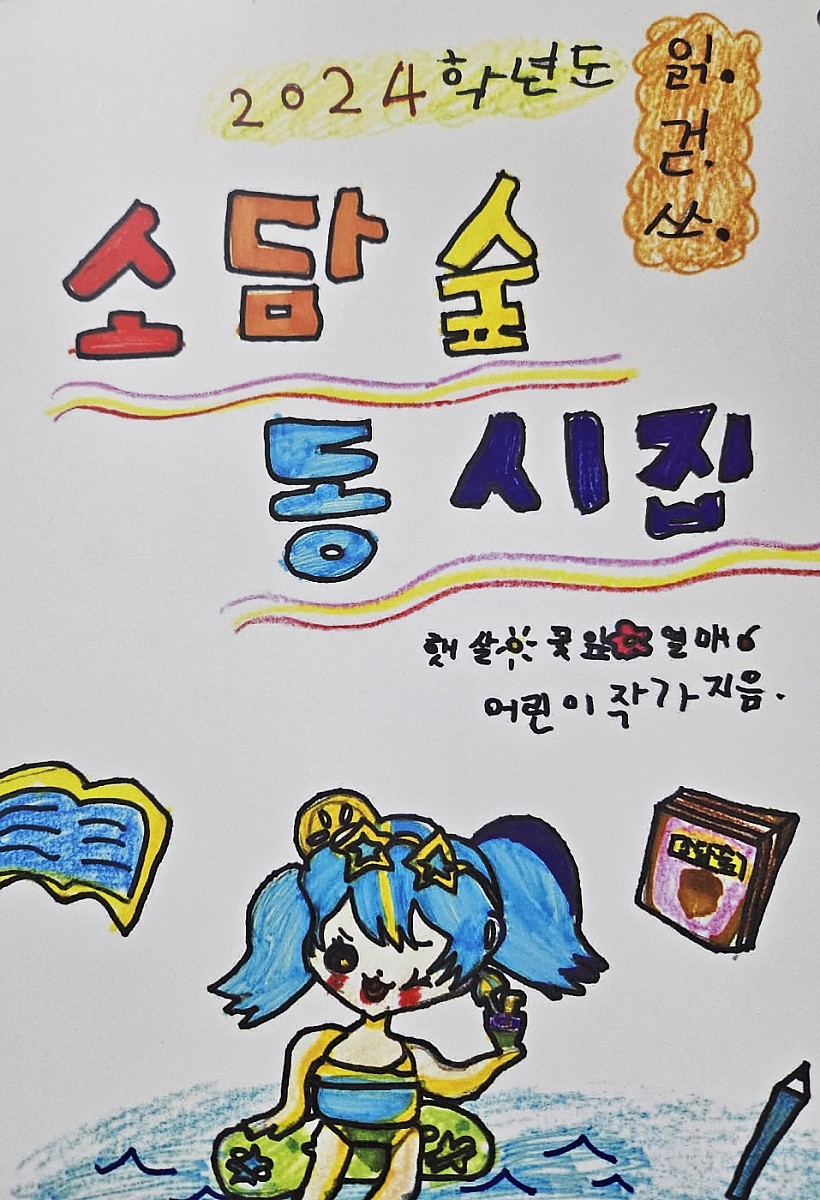 2024학년도
읽.
걷.
쓰.
소담숲
동시집
햇살 꽃잎 열매
어린이작가지음.